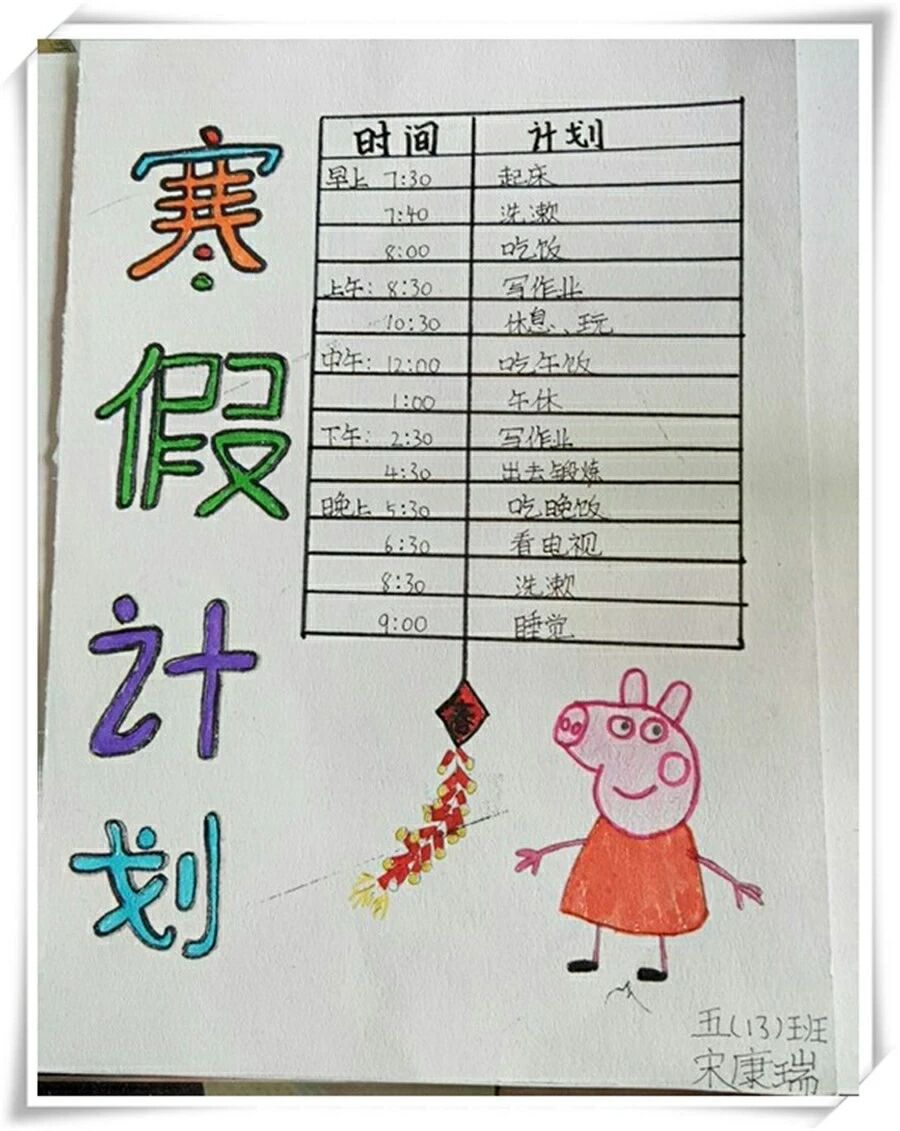 寒假计划
时间 计划
早上 7:30 起床
7:40 洗漱
8:00 吃饭
上午: 8:30 写作业
10:30 休息、玩
中午: 12:00 吃午饭
1:00 午休
下午: 2:30 写作业
4:30 出去锻炼
晚上 5:30 吃晚饭
6:30 看电视
8:30 洗漱
9:00 睡觉
春
五(13)班
宋康瑞